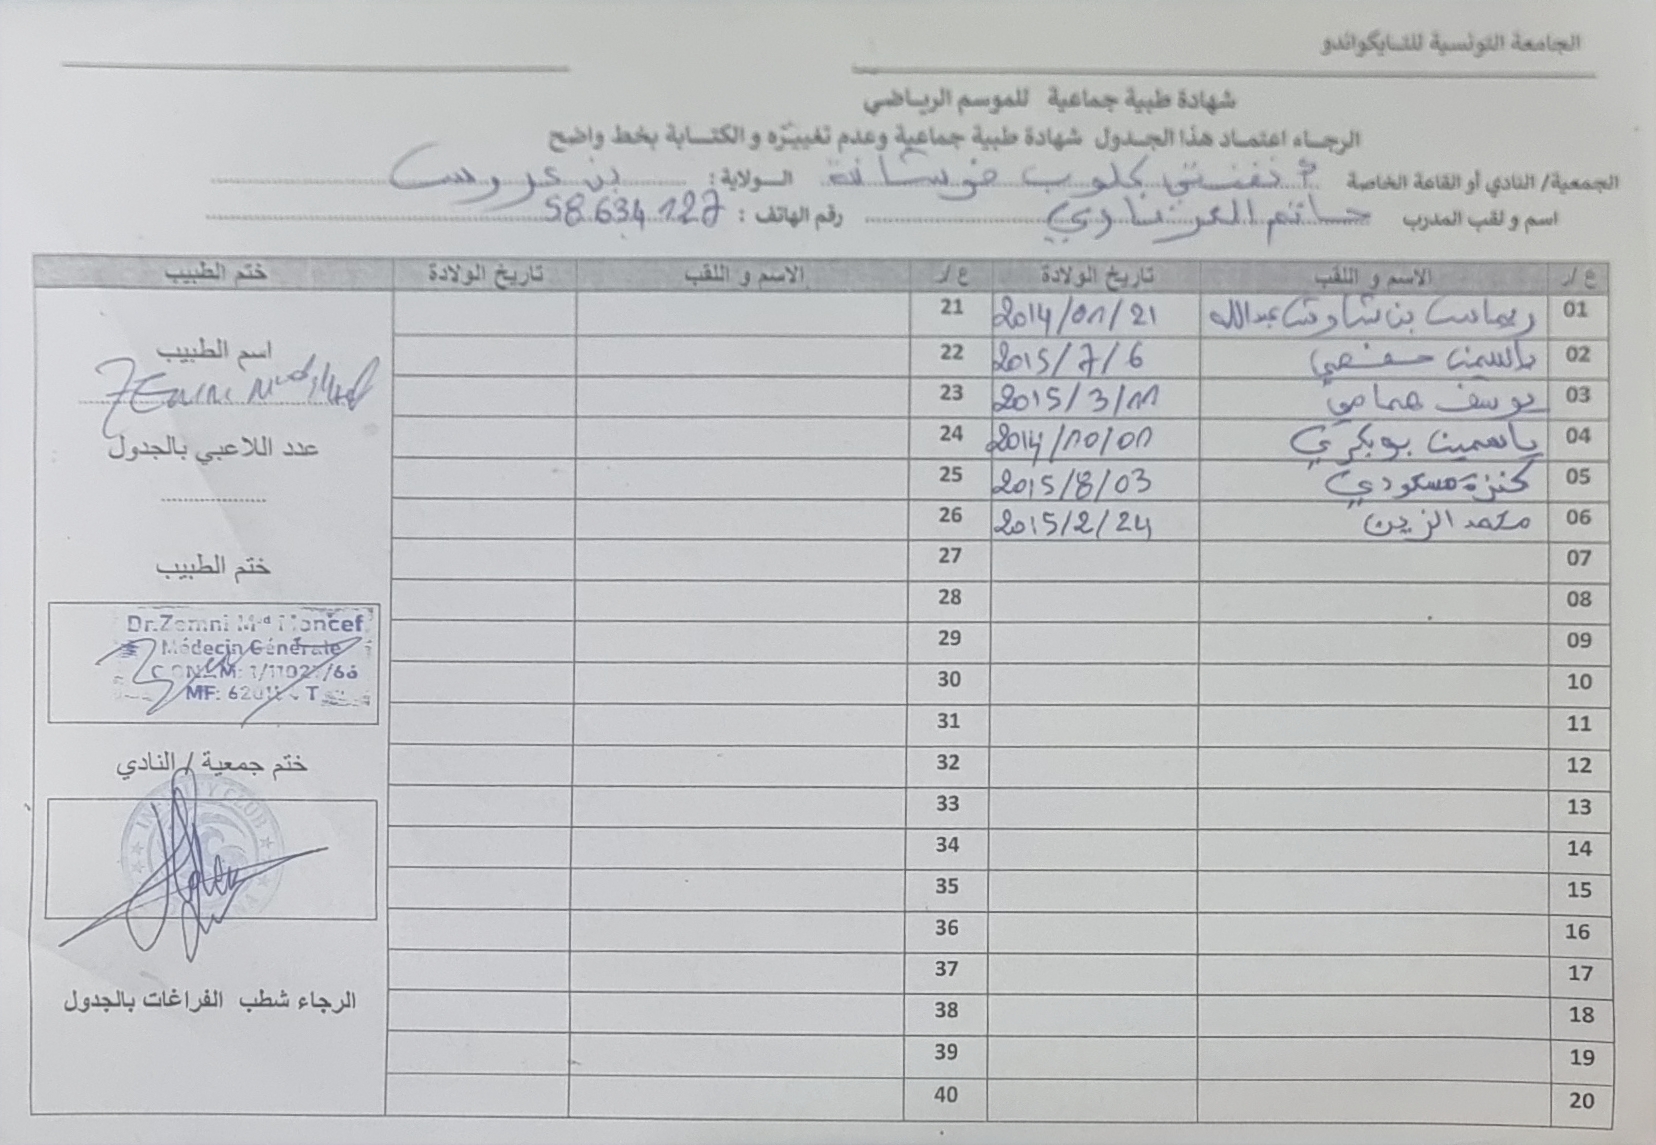 الجامعة التونسية للتايكواندو
شهادة طبية جماعية للموسم الرياضي
الرجاء اعتماد هذا الجدول شهادة طبية جماعية وعدم تغييره و الكتابة بخط واضح
الجمعية/ النادي أو القاعة الخاصة كلوب الولاية: بن عروس
اسم و لقب المدرب حاتم رقم الهاتف: 58.634.127
ع/ر الاسم و اللقب تاريخ الولادة ع/ر الاسم و اللقب تاريخ الولادة ختم الطبيب
01 ريماس بن شاوش عبدالله 2014/01/21 21
02 ياسمين حفصي 2015/7/6 22
03 يوسف همامي 2015/3/11 23
04 ياسمين بوبكري 2014/10/01 24
05 كنزة مسعودي 2015/8/03 25
06 محمد الزين 2015/2/24 26
07 27
08 28
09 29
10 30
11 31
12 32
13 33
14 34
15 35
16 36
17 37
18 38
19 39
20 40
اسم الطبيب
عدد اللاعبي بالجدول
ختم الطبيب
Dr.Zemni Md Moncef
Médecin Générale
MF:
ختم جمعية / النادي
CLUB
الرجاء شطب الفراغات بالجدول